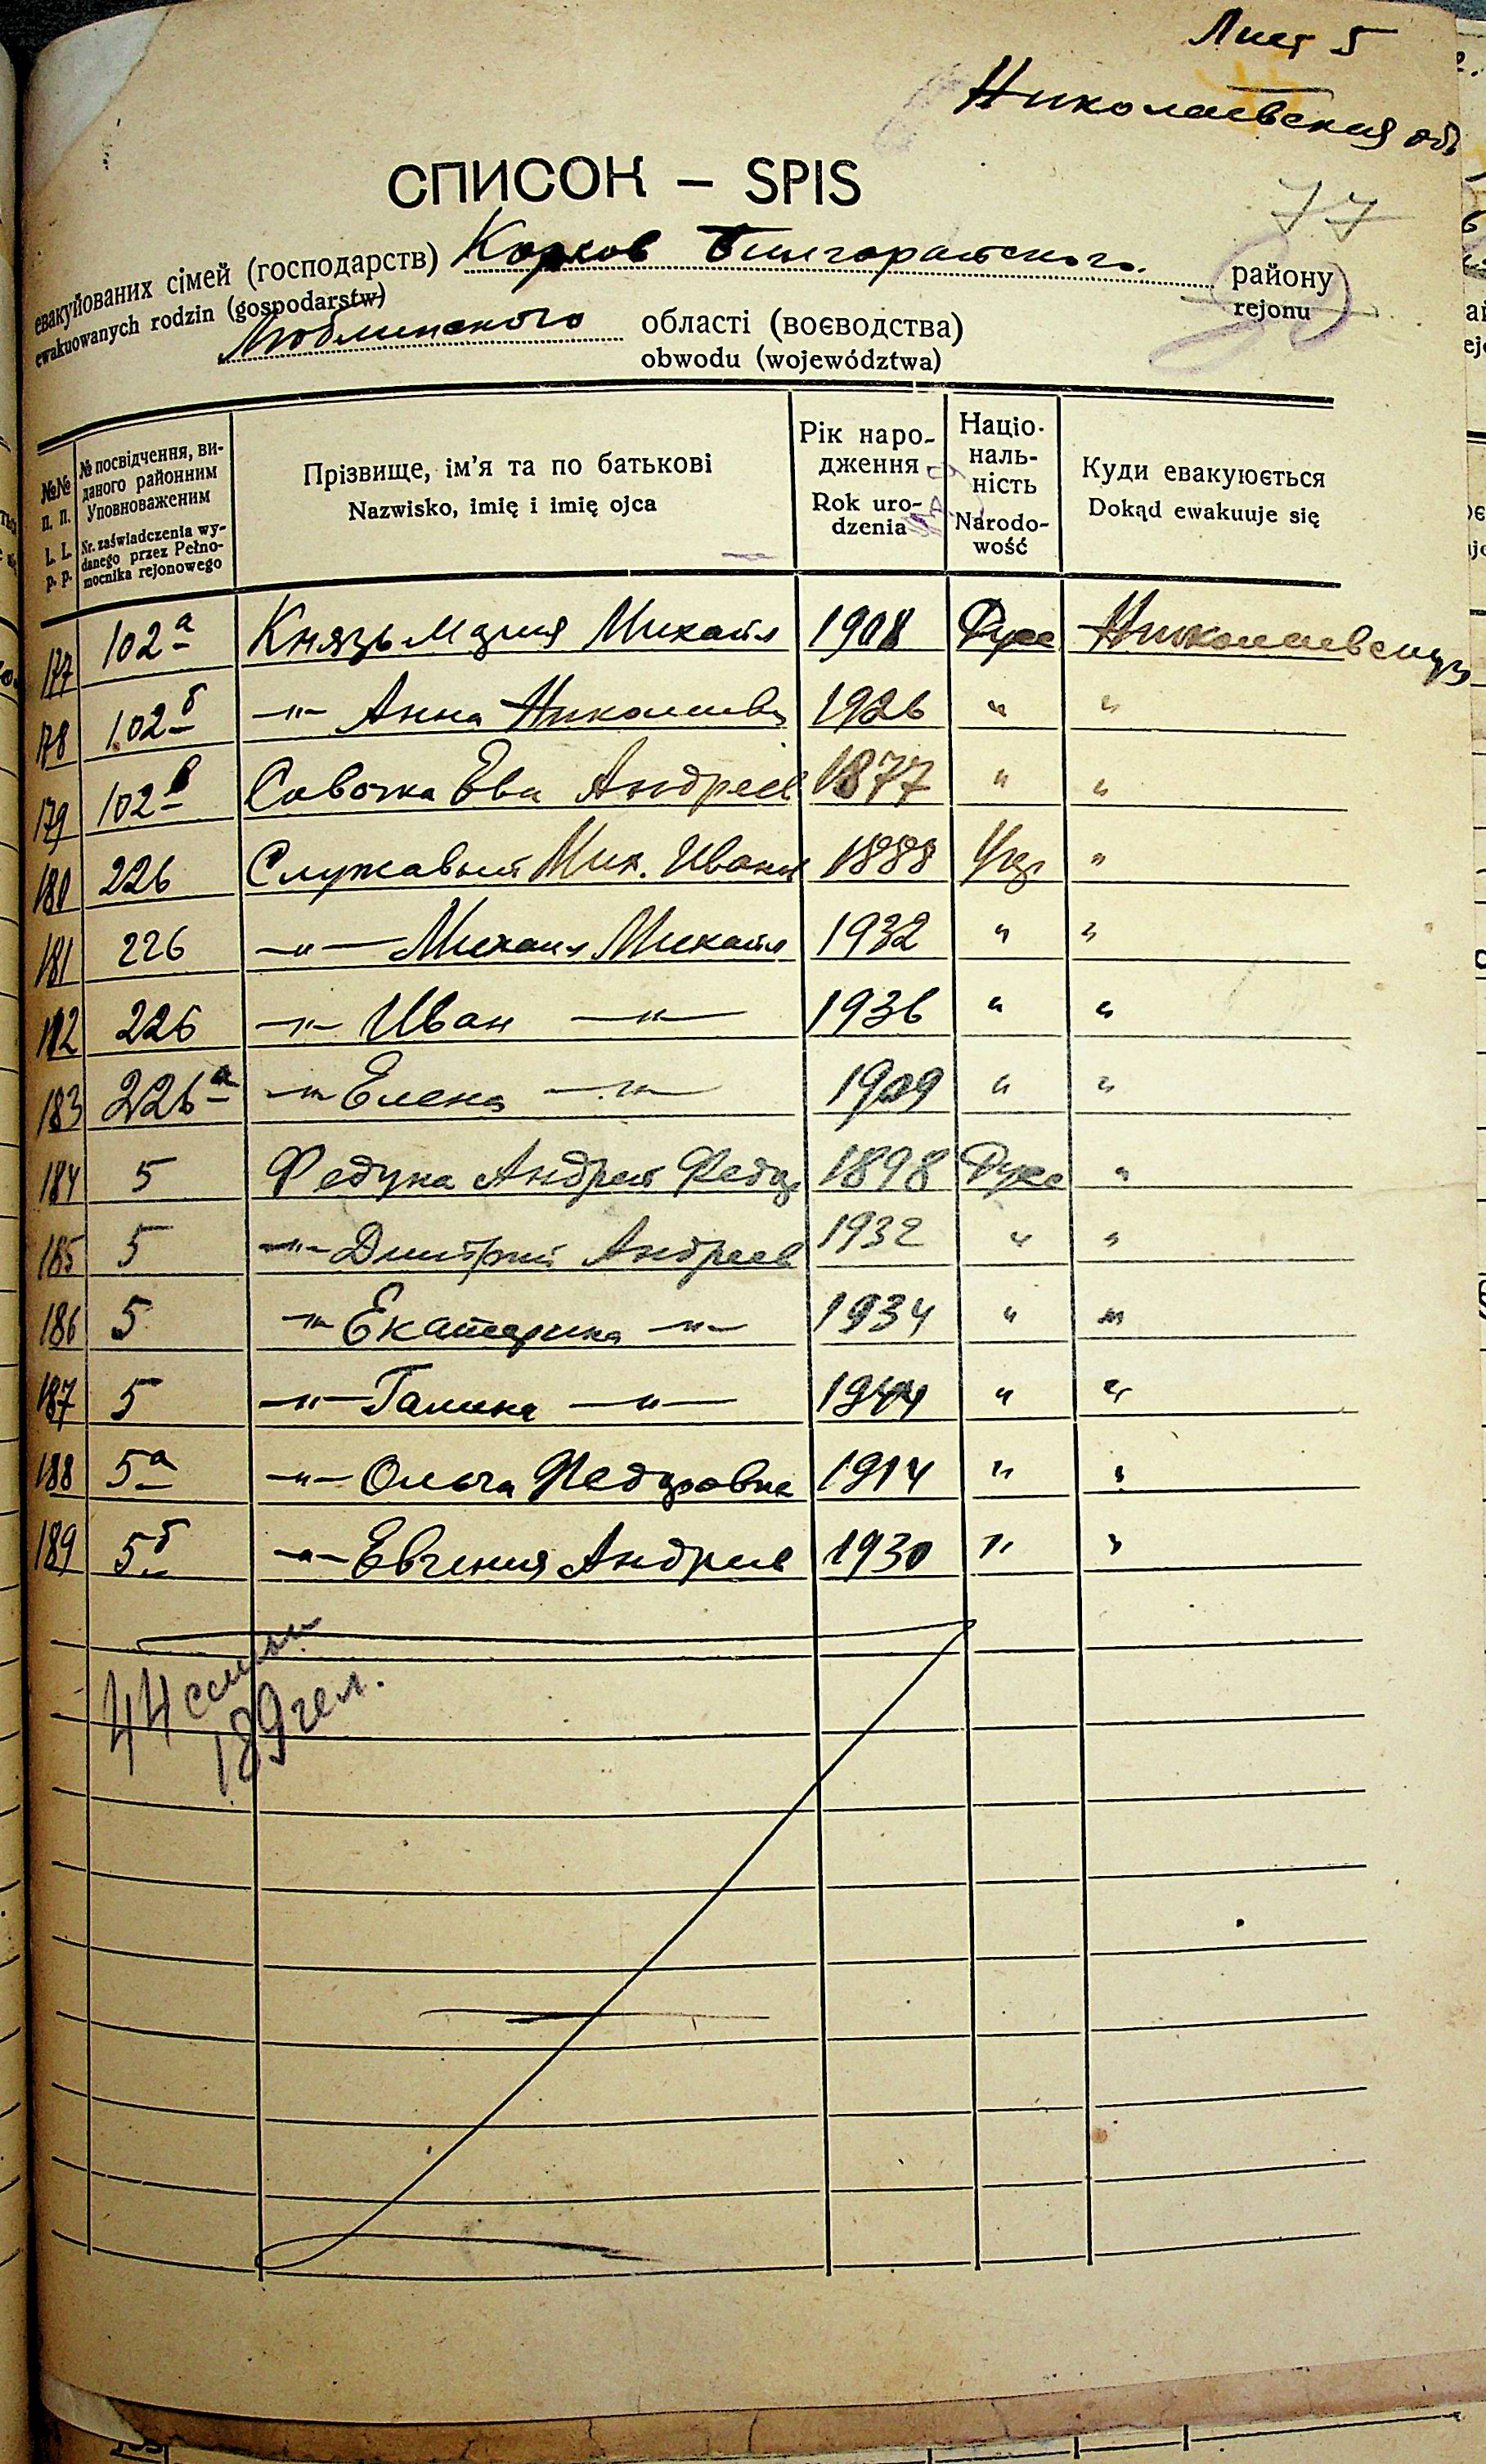 Лист 5
Николаевская обл
77
СПИСОК — SPIS
евакуйованих сімей (господарств) Корхов Билгорайского району
ewakuowanych rodzin (gospodarstw) rejonu
Люблинского області (воєводства)
obwodu (województwa)
№№ п. п. L. L. p. p. № посвідчення, виданого районним Уповноваженим Nr. zaświadczenia wydanego przez Pełnomocnika rejonowego Прізвище, ім'я та по батькові Nazwisko, imię i imię ojca Рік народження Rok urodzenia Національність Narodowość Куди евакуюється Dokąd ewakuuje się
177 102а Князь Мария Михайл 1908 Русс Николаевскую
178 102б —"— Анна Николаевн 1926 " "
179 102в Савочка Ева Андреев 1877 " "
180 226 Служавый Мих. Иванов 1888 Укр "
181 226 —"— Михаил Михайл 1932 " "
182 226 —"— Иван —"— 1936 " "
183 226а —"— Елена —"— 1909 " "
184 5 Федуна Андрей Федор 1898 Русс "
185 5 —"— Дмитрий Андреев 1932 " "
186 5 —"— Екатерина —"— 1934 " "
187 5 —"— Галина —"— 1944 " "
188 5а —"— Ольга Федоровна 1914 " "
189 5б —"— Евгения Андреев 1930 " "
44 семьи
189 чел.